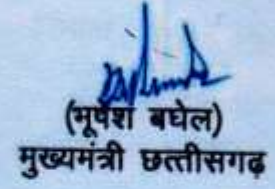 (भूपेश बघेल)
मुख्यमंत्री छत्तीसगढ़